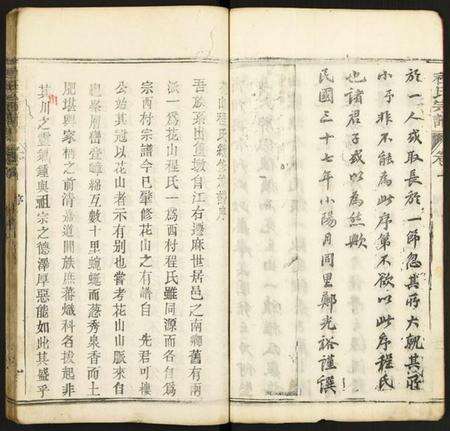 於一人或取長於一節忽其所大覩其所
小予非不能為此序第不欲以此序程氏
也諸君子或以為然歟
民國三十七年小陽月同里鄭光裕謹撰
程氏宗譜 卷一
吾族系出篁墩自江右遷麻世居邑之南鄉舊有兩
派一為花山程氏一為西村程氏雖同源而各自為
宗西村宗譜今已肇修花山之有譜自 先君可樓
公始其冠以花山者示有別也嘗考花山山脈來自
層巒疊嶂綿亙數十里蜿蜒而蔥秀泉香而土
肥堪輿家稱之前清嘉道間族庶蕃熾科名拔起非
其川之靈氣鍾與祖宗之德澤厚惡能如此其盛乎